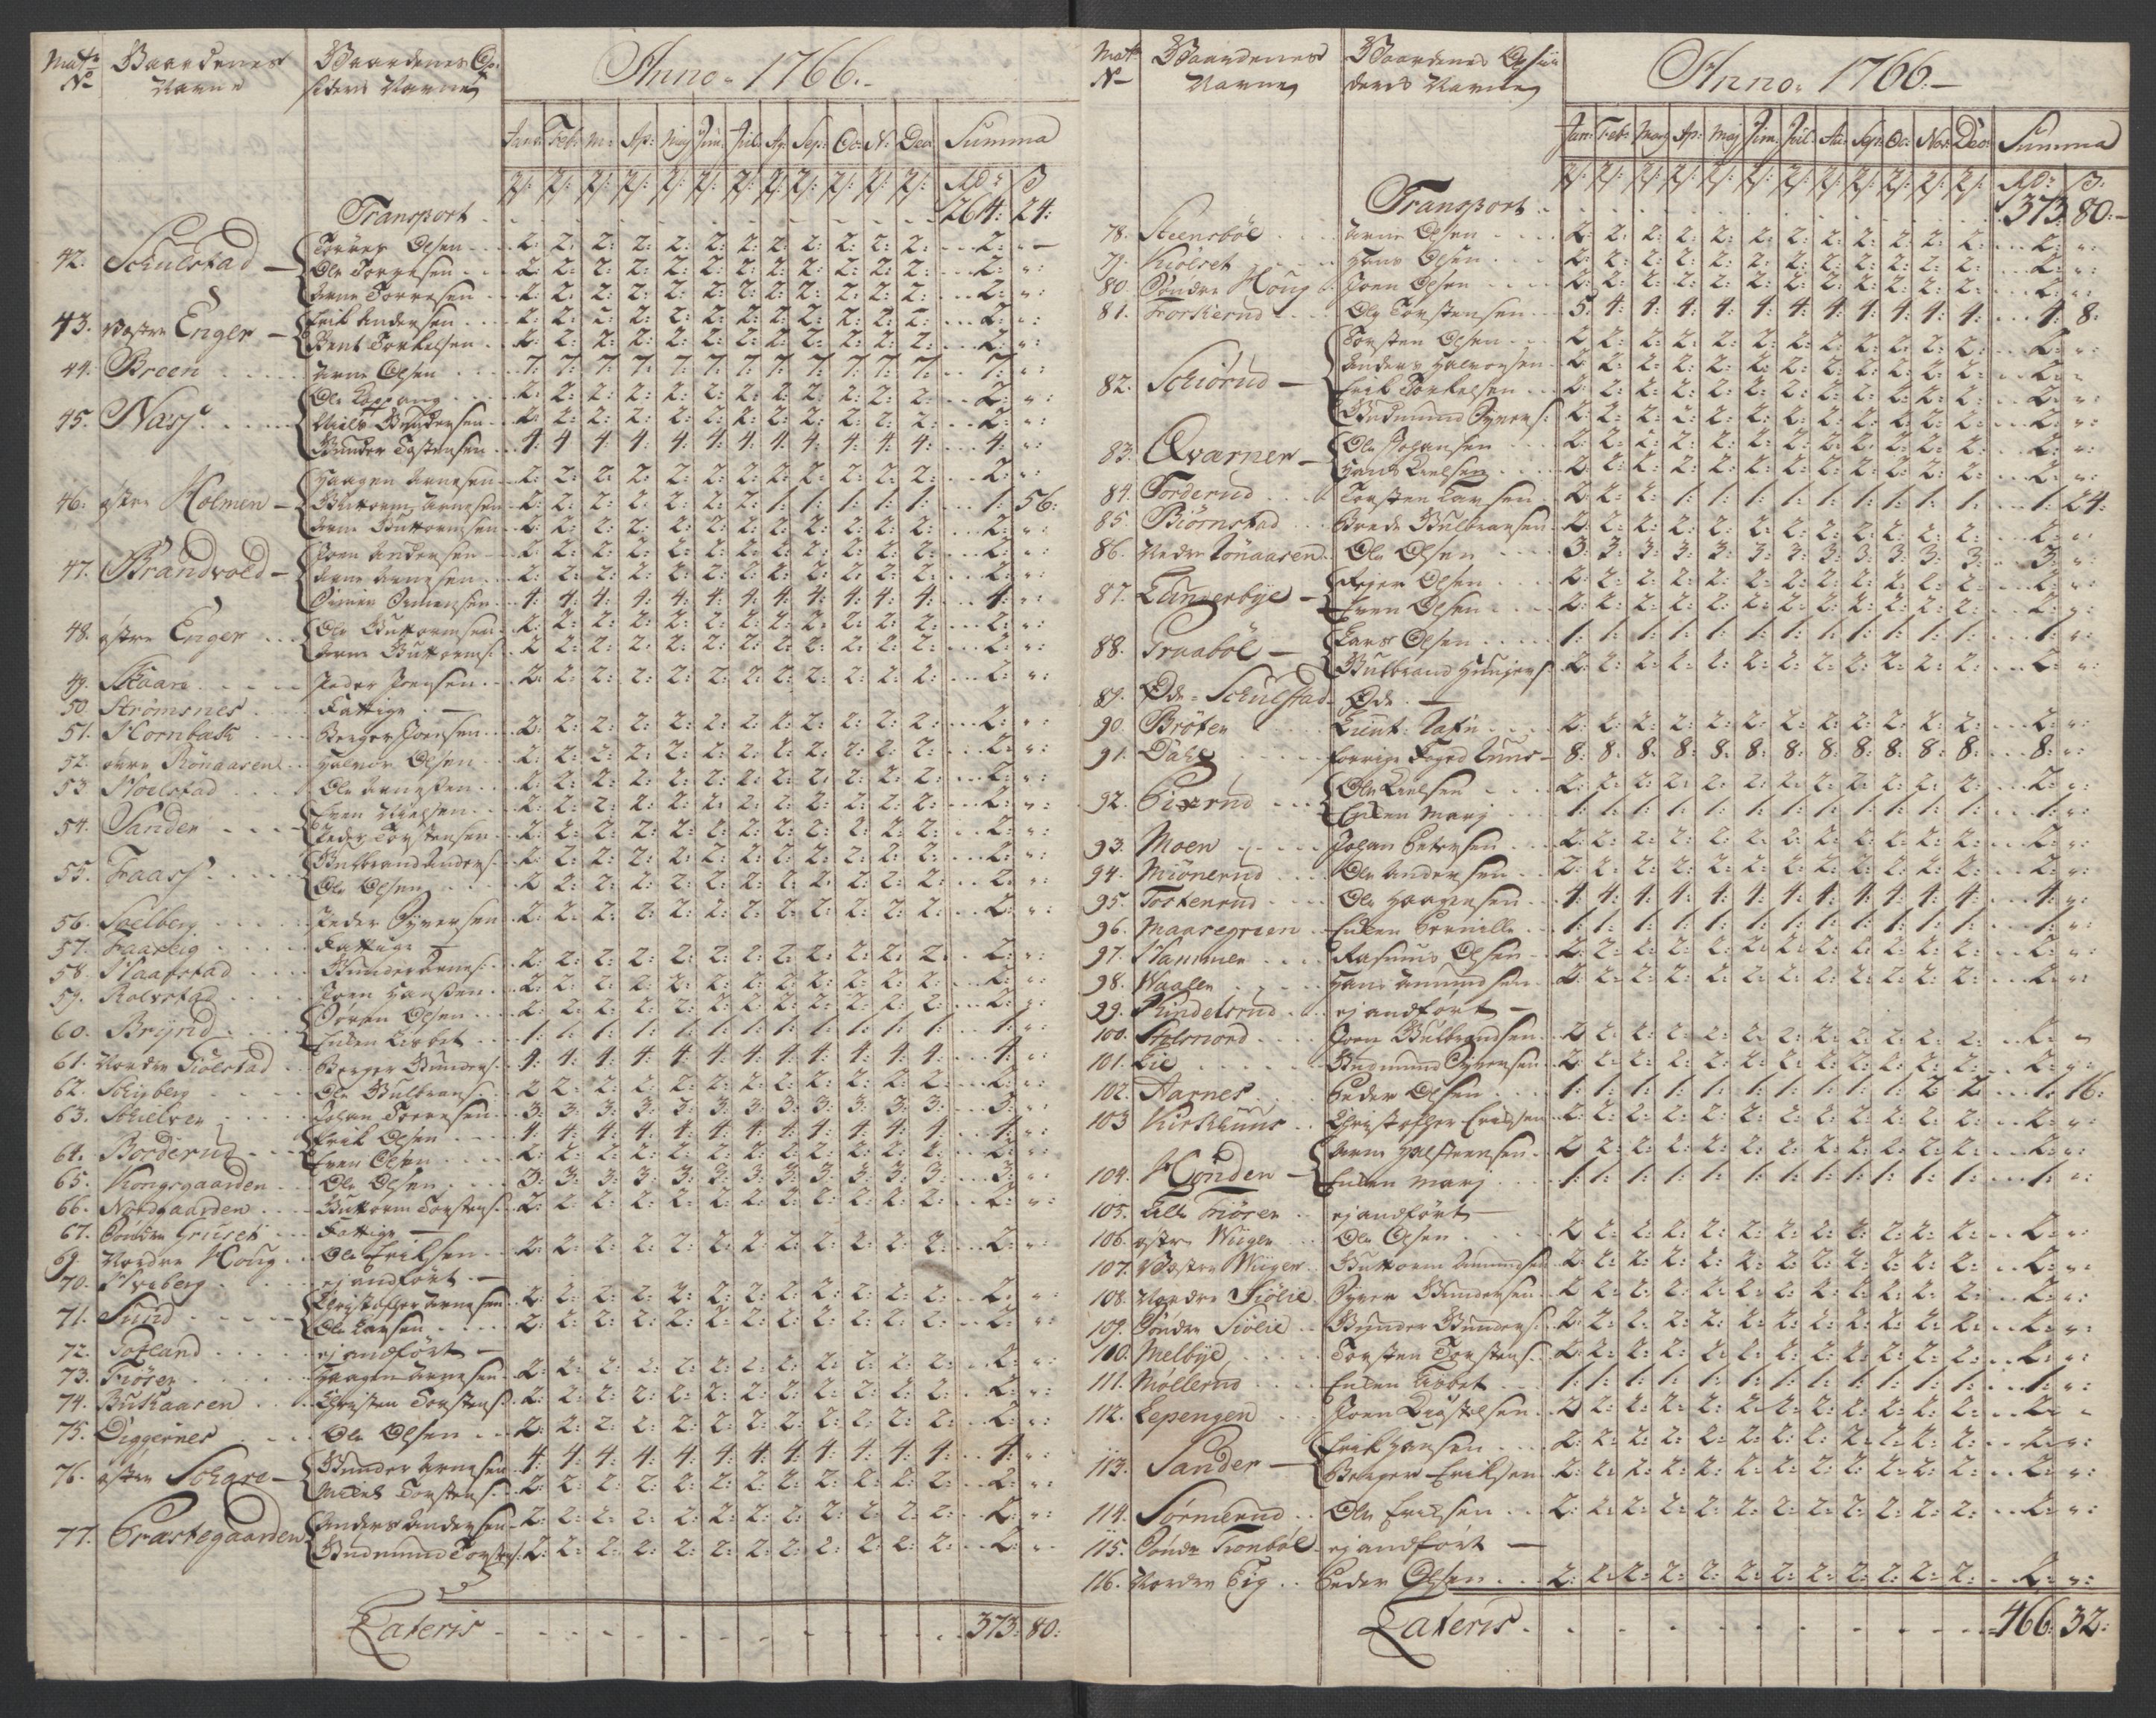 Matr No Gaardenes Navne Gaardenes Op- siders Navne Anno 1766.
Janu: Feb: M: Ap: Maj Jun: Jul: Ag: Sep: Oc: N: Dec: Summa
Rd: ß
Transport 264: 24:
42. Schulstad Torger Olsen 2: 2: 2: 2: 2: 2: 2: 2: 2: 2: 2: 2: 2:
Ole Torgesen 2: 2: 2: 2: 2: 2: 2: 2: 2: 2: 2: 2: 2: ":
Arne Torgesen 2: 2: 2: 2: 2: 2: 2: 2: 2: 2: 2: 2: 2: ":
43. Vestre Enger Erik Andersen 2: 2: 2: 2: 2: 2: 2: 2: 2: 2: 2: 2: 2: ":
Bent Torkelsen 2: 2: 2: 2: 2: 2: 2: 2: 2: 2: 2: 2: 2: ":
44. Broen Arne Olsen 7: 7: 7: 7: 7: 7: 7: 7: 7: 7: 7: 7: 7: ":
45. Næss Ole Koppang 2: 2: 2: 2: 2: 2: 2: 2: 2: 2: 2: 2: 2: ":
Niels Gundersen 2: 2: 2: 2: 2: 2: 2: 2: 2: 2: 2: 2: 2: ":
Gunder Tostensen 4: 4: 4: 4: 4: 4: 4: 4: 4: 4: 4: 4: 4: ":
46. østre Holmen Haagen Arnesen 2: 2: 2: 2: 2: 2: 2: 2: 2: 2: 2: 2: 2: ":
Guttorm Arnesen 2: 2: 2: 2: 2: 2: 2: 1: 1: 1: 1: 1: 1: 56:
Arne Guttormsen 2: 2: 2: 2: 2: 2: 2: 2: 2: 2: 2: 2: 2: ":
47. Brandvold Joen Andersen 2: 2: 2: 2: 2: 2: 2: 2: 2: 2: 2: 2: 2: ":
Arne Arnesen 2: 2: 2: 2: 2: 2: 2: 2: 2: 2: 2: 2: 2: ":
Simen Simensen 4: 4: 4: 4: 4: 4: 4: 4: 4: 4: 4: 4: 4: ":
48. østre Enger Ole Guttormsen 2: 2: 2: 2: 2: 2: 2: 2: 2: 2: 2: 2: 2: ":
Arne Guttorms: 2: 2: 2: 2: 2: 2: 2: 2: 2: 2: 2: 2: 2: ":
49. Skaare Peder Joensen 2: 2: 2: 2: 2: 2: 2: 2: 2: 2: 2: 2: 2: ":
50. Strømsnes Fattige
51. Hornbæk Berger Joensen 2: 2: 2: 2: 2: 2: 2: 2: 2: 2: 2: 2: 2: ":
52. øvre Rønaasen Halvor Olsen 2: 2: 2: 2: 2: 2: 2: 2: 2: 2: 2: 2: 2: ":
53. Noelstad Ole Arnesen 2: 2: 2: 2: 2: 2: 2: 2: 2: 2: 2: 2: 2: ":
54. Sander Sven Nielsen 2: 2: 2: 2: 2: 2: 2: 2: 2: 2: 2: 2: 2: ":
Peder Torstensen 2: 2: 2: 2: 2: 2: 2: 2: 2: 2: 2: 2: 2: ":
55. Faass Gulbrand Anders: 2: 2: 2: 2: 2: 2: 2: 2: 2: 2: 2: 2: 2: ":
Ole Olsen 2: 2: 2: 2: 2: 2: 2: 2: 2: 2: 2: 2: 2: ":
56. Solberg Peder Syversen 2: 2: 2: 2: 2: 2: 2: 2: 2: 2: 2: 2: 2: ":
57. Faarlig Fattige
58. Haafstad Gunder Arnes: 2: 2: 2: 2: 2: 2: 2: 2: 2: 2: 2: 2: 2: ":
59. Rolvstad Joen Hansen 2: 2: 2: 2: 2: 2: 2: 2: 2: 2: 2: 2: 2: ":
60. Bryni Søren Olsen 2: 2: 2: 2: 2: 2: 2: 2: 2: 2: 2: 2: 2: ":
Enken Lisbet 1: 1: 1: 1: 1: 1: 1: 1: 1: 1: 1: 1: 1: ":
61. Nordre Fiølstad Berger Gunders: 4: 4: 4: 4: 4: 4: 4: 4: 4: 4: 4: 4: 4: ":
62. Skyberg Ole Gulbrans: 2: 2: 2: 2: 2: 2: 2: 2: 2: 2: 2: 2: 2: ":
63. Skielver Johan Torresen 3: 3: 3: 3: 3: 3: 3: 3: 3: 3: 3: 3: 3: ":
64. Borderud Erik Olsen 4: 4: 4: 4: 4: 4: 4: 4: 4: 4: 4: 4: 4: ":
Even Olsen 2: 2: 2: 2: 2: 2: 2: 2: 2: 2: 2: 2: 2: ":
65. Kongsgaarden Ole Olsen 3: 3: 3: 3: 3: 3: 3: 3: 3: 3: 3: 3: 3: ":
66. Nordgaarden Guttorm Torstens: 2: 2: 2: 2: 2: 2: 2: 2: 2: 2: 2: 2: 2: ":
67. Søndre Gruset Fattige
69. Nordre Houg Ole Eriksen 2: 2: 2: 2: 2: 2: 2: 2: 2: 2: 2: 2: 2: ":
70. Hveberg ej andført
71. Sund Christopher Arnesen 2: 2: 2: 2: 2: 2: 2: 2: 2: 2: 2: 2: 2: ":
Ole Larsen 2: 2: 2: 2: 2: 2: 2: 2: 2: 2: 2: 2: 2: ":
72. Tofland ej andført
73. Fiøser Haagen Arnesen 2: 2: 2: 2: 2: 2: 2: 2: 2: 2: 2: 2: 2: ":
74. Bukaasen Christen Torstens: 2: 2: 2: 2: 2: 2: 2: 2: 2: 2: 2: 2: 2: ":
75. Diggernes Ole Olsen 2: 2: 2: 2: 2: 2: 2: 2: 2: 2: 2: 2: 2: ":
76. østre Schare Gunder Arnesen 4: 4: 4: 4: 4: 4: 4: 4: 4: 4: 4: 4: 4: ":
Mikel Torstens: 2: 2: 2: 2: 2: 2: 2: 2: 2: 2: 2: 2: 2: ":
77. Præstegaarden Anders Andersen 2: 2: 2: 2: 2: 2: 2: 2: 2: 2: 2: 2: 2: ":
Gudmund Torstens: 2: 2: 2: 2: 2: 2: 2: 2: 2: 2: 2: 2: 2:
Lateris 373: 80:
Matr No Gaardenes Navne Gaardenes Opsid- ders Navne Anno 1766.
Jan: Feb: Marz Ap: Maj Jun: Jul: Au: Sep: Oc: Nov: Dec: Summa
Rd: ß:
Transport 373: 80:
78. Steensbøl Arne Olsen 2: 2: 2: 2: 2: 2: 2: 2: 2: 2: 2: 2: 2: ":
79. Kiolset Hans Olsen 2: 2: 2: 2: 2: 2: 2: 2: 2: 2: 2: 2: 2: ":
80. Søndre Houg Joen Olsen 2: 2: 2: 2: 2: 2: 2: 2: 2: 2: 2: 2: 2: ":
81. Torkerud Ole Torstensen 5: 4: 4: 4: 4: 4: 4: 4: 4: 4: 4: 4: 4: 8:
82. Schiørud Torsten Olsen 2: 2: 2: 2: 2: 2: 2: 2: 2: 2: 2: 2: 2: ":
Anders Halvorsen 2: 2: 2: 2: 2: 2: 2: 2: 2: 2: 2: 2: 2: "
Erik Torkelsen 2: 2: 2: 2: 2: 2: 2: 2: 2: 2: 2: 2: 2: ":
Gudmund Syvers: 2: 2: 2: 2: 2: 2: 2: 2: 2: 2: 2: 2: 2: ":
83. Qværner Ole Johansen 2: 2: 2: 2: 2: 2: 2: 2: 2: 2: 2: 2: 2: ":
Hans Nielsen 2: 2: 2: 2: 2: 2: 2: 2: 2: 2: 2: 2: 2: ":
84. Torderud Torsten Larsen 2: 2: 2: 1: 1: 1: 1: 1: 1: 1: 1: 1: 1: 24:
85. Biørnstad Brede Gulbransen 2: 2: 2: 2: 2: 2: 2: 2: 2: 2: 2: 2: 2: ":
86. Nedre Rønaasen Ole Olsen 3: 3: 3: 3: 3: 3: 3: 3: 3: 3: 3: 3: 3: ":
87. Tangerbye Peder Olsen 2: 2: 2: 2: 2: 2: 2: 2: 2: 2: 2: 2: 2: ":
Even Olsen 2: 2: 2: 2: 2: 2: 2: 2: 2: 2: 2: 2: 2: ":
88. Traabøl Lars Olsen 1: 1: 1: 1: 1: 1: 1: 1: 1: 1: 1: 1: 1: ":
Gulbrand 2: 2: 2: 2: 2: 2: 2: 2: 2: 2: 2: 2: 2: ":
89. Øde-Schulstad Øde
90. Brøten Lieut: 2: 2: 2: 2: 2: 2: 2: 2: 2: 2: 2: 2: 2: ":
91. Dahl forrige Foged Juus 8: 8: 8: 8: 8: 8: 8: 8: 8: 8: 8: 8: 8: ":
92. Ole Nielsen 2: 2: 2: 2: 2: 2: 2: 2: 2: 2: 2: 2: 2: ":
Enken Marj 1: 1: 1: 1: 1: 1: 1: 1: 1: 1: 1: 1: 1: ":
93. Moen Johan Petersen 2: 2: 2: 2: 2: 2: 2: 2: 2: 2: 2: 2: 2: ":
94. Miønerud Ole Andersen 2: 2: 2: 2: 2: 2: 2: 2: 2: 2: 2: 2: 2: ":
95. Tostenrud Ole Haagensen 4: 4: 4: 4: 4: 4: 4: 4: 4: 4: 4: 4: 4: ":
96. Maasegrien Enken Pernille 1: 1: 1: 1: 1: 1: 1: 1: 1: 1: 1: 1: 1: ":
97. Hammer Rasmus Olsen 2: 2: 2: 2: 2: 2: 2: 2: 2: 2: 2: 2: 2: ":
98. Waaler Hans Amundsen 2: 2: 2: 2: 2: 2: 2: 2: 2: 2: 2: 2: 2: ":
99. Kindelsrud ej andført
100. Joen Gulbrandsen 2: 2: 2: 2: 2: 2: 2: 2: 2: 2: 2: 2: 2: "
101. Lie Gudmund Syversen 2: 2: 2: 2: 2: 2: 2: 2: 2: 2: 2: 2: 2: ":
102. Aarnes Peder Olsen 1: 1: 1: 1: 1: 1: 1: 1: 1: 1: 2: 2: 1: 16:
103 Kirkhuus Christopher Eriksen 2: 2: 2: 2: 2: 2: 2: 2: 2: 2: 2: 2: 2: ":
104. Hønden Arne Halstensen 2: 2: 2: 2: 2: 2: 2: 2: 2: 2: 2: 2: 2: ":
Enken Marj 1: 1: 1: 1: 1: 1: 1: 1: 1: 1: 1: 1: 1: ":
105. Lille Fiøser ej andført
106. østre Wiiger Ole Olsen 2: 2: 2: 2: 2: 2: 2: 2: 2: 2: 2: 2: 2: ":
107. Vestre Wiiger Guttorm Amundsen 2: 2: 2: 2: 2: 2: 2: 2: 2: 2: 2: 2: 2: ":
108. Nordre Siølie Syver Gundersen 2: 2: 2: 2: 2: 2: 2: 2: 2: 2: 2: 2: 2: ":
109. Søndre Siølie Gunder Gunders: 2: 2: 2: 2: 2: 2: 2: 2: 2: 2: 2: 2: 2: ":
110. Melbye Torsten Torstens: 2: 2: 2: 2: 2: 2: 2: 2: 2: 2: 2: 2: 2: ":
111. Møllerud Enken Lisbet 1: 1: 1: 1: 1: 1: 1: 1: 1: 1: 1: 1: 1: ":
112. Lepengen Joen 2: 2: 2: 2: 2: 2: 2: 2: 2: 2: 2: 2: 2: "
113. Sander Erik Hansen 2: 2: 2: 2: 2: 2: 2: 2: 2: 2: 2: 2: 2: ":
Berger Eriksen 2: 2: 2: 2: 2: 2: 2: 2: 2: 2: 2: 2: 2: ":
114. Sørmerud Ole Eriksen 2: 2: 2: 2: 2: 2: 2: 2: 2: 2: 2: 2: 2: ":
115. Søndr Tronbøl ej andført
116. Nordre Eig Peder Olsen 2: 2: 2: 2: 2: 2: 2: 2: 2: 2: 2: 2: 2: ":
Lateris 466: 32: